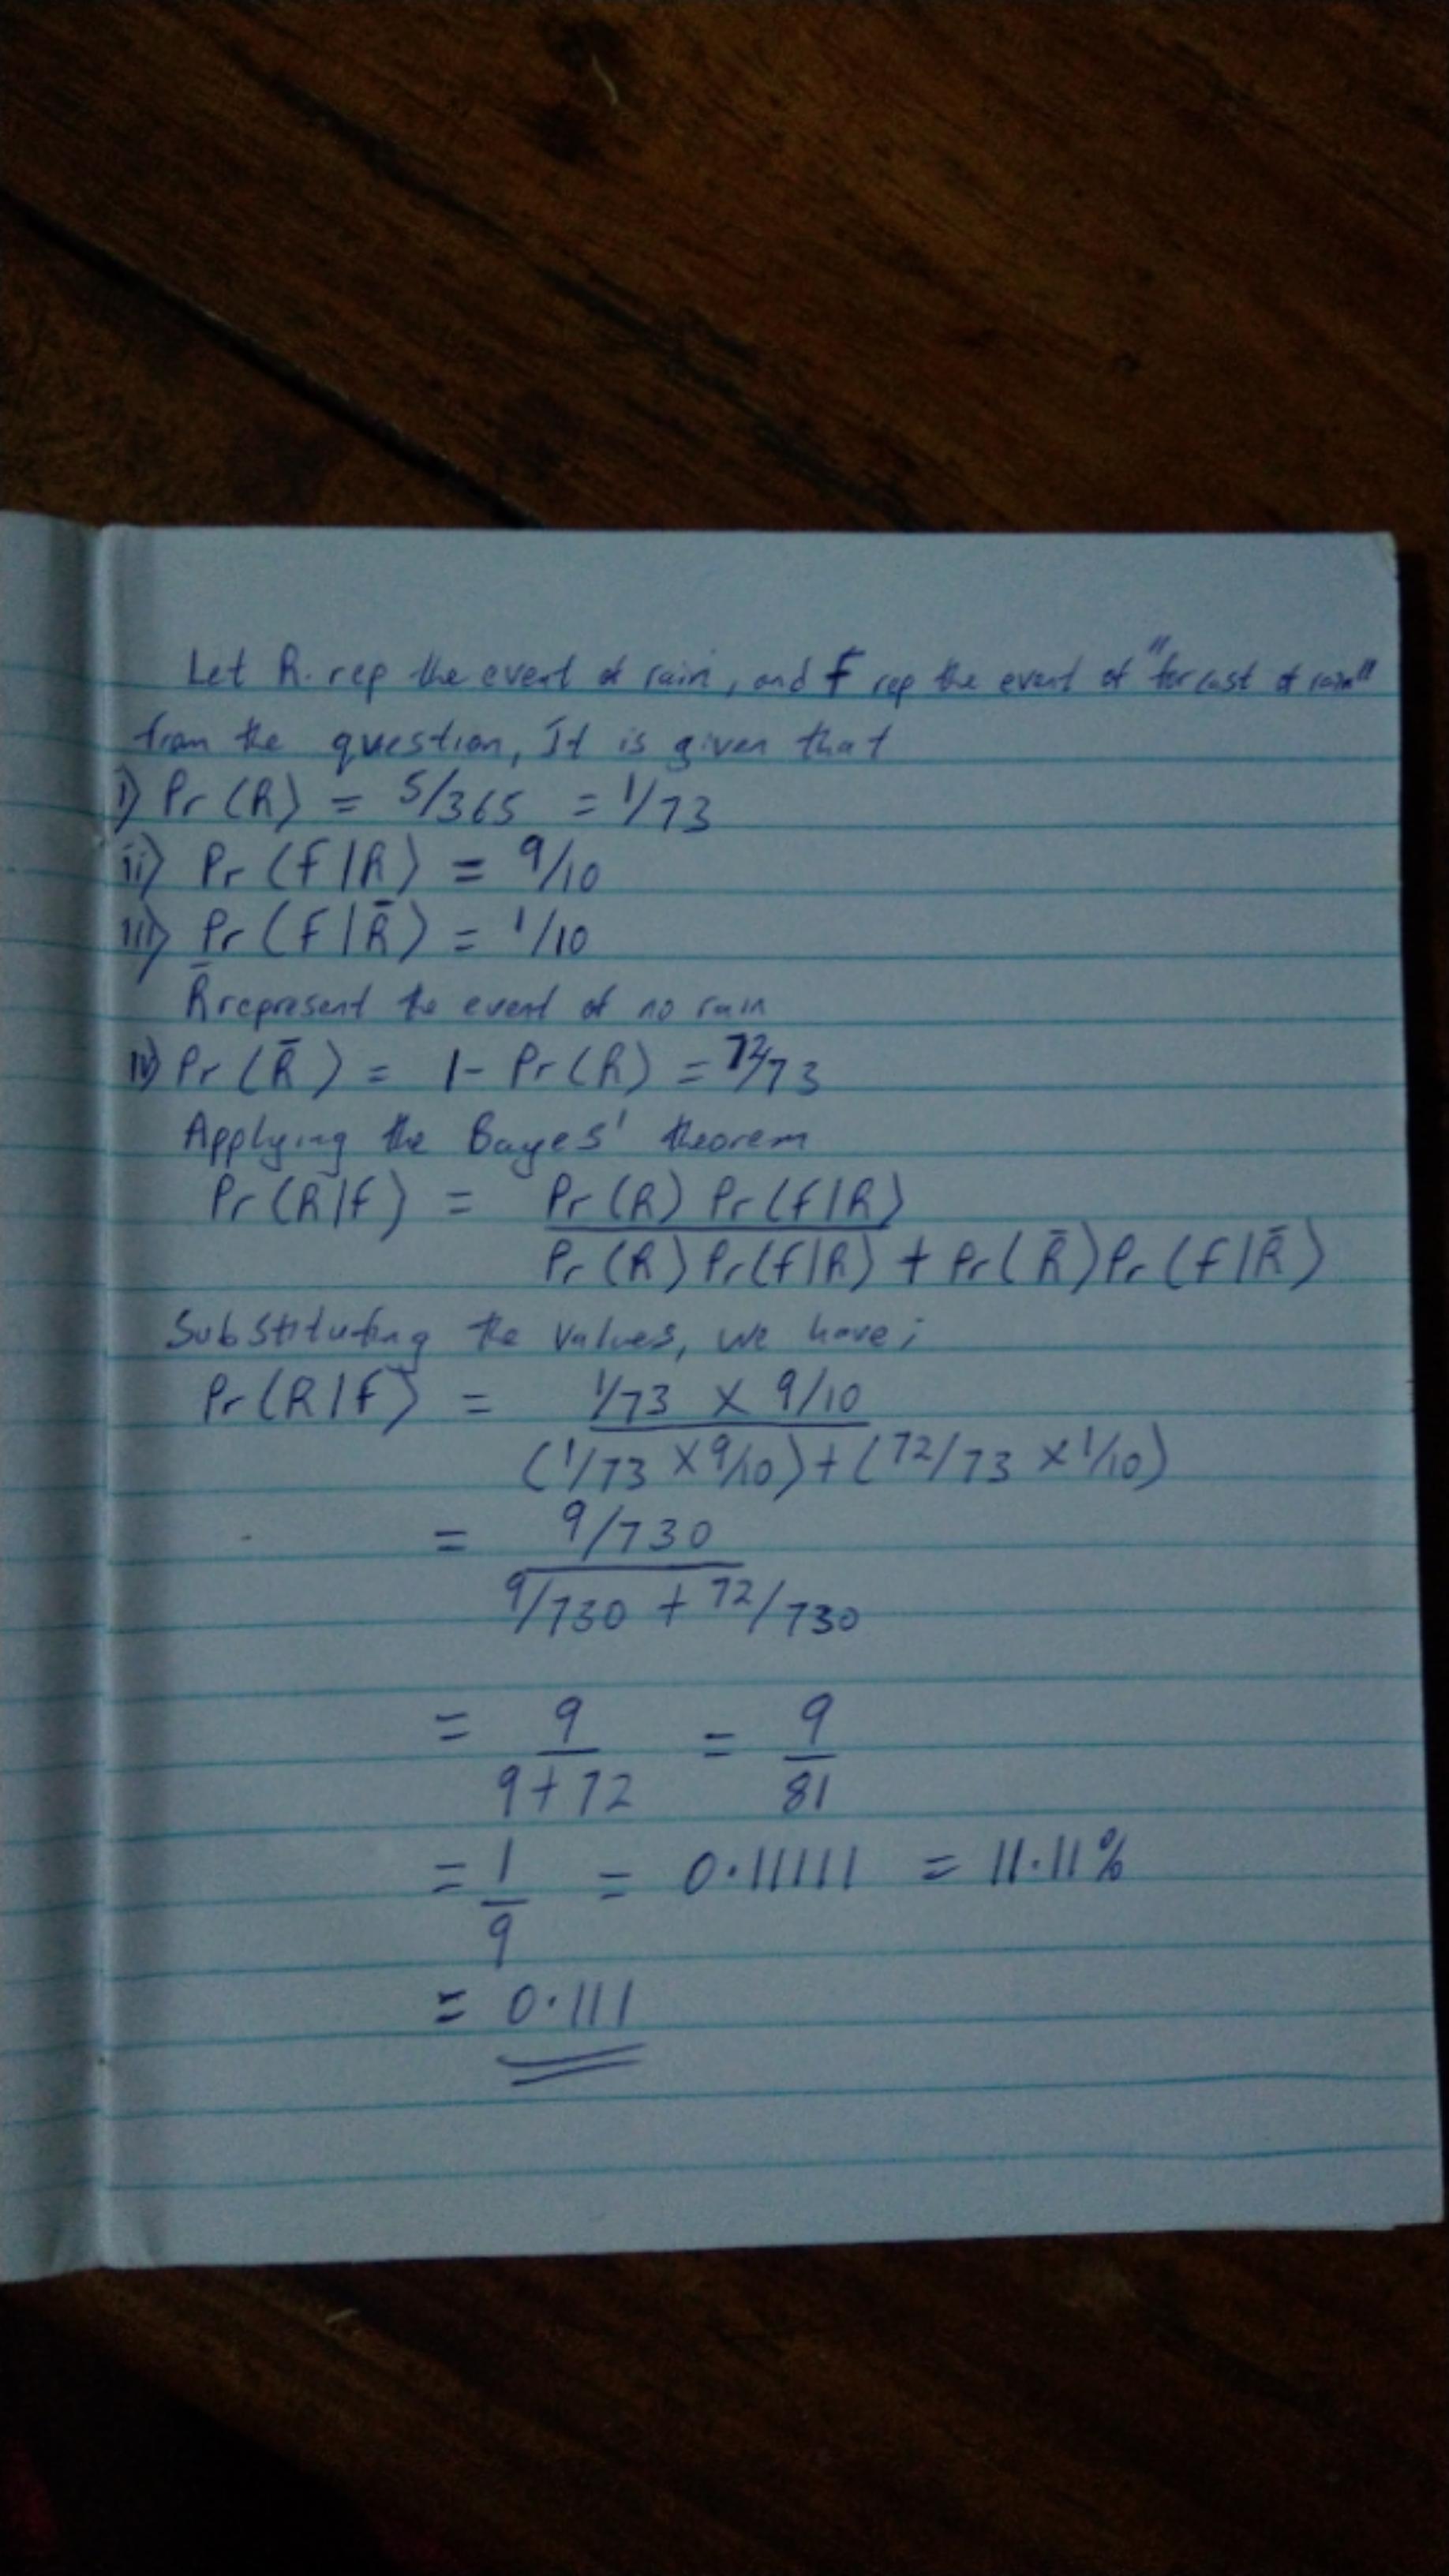 Let R. rep the event of rain, and F rep the event of "forcast of rain"
from the question, It is given that
i) Pr (R) = 5/365 = 1/73
ii) Pr (F|R) = 9/10
iii) Pr (F|R̄) = 1/10
R̄ represent the event of no rain
iv) Pr (R̄) = 1 - Pr (R) = 72/73
Applying the Bayes' theorem
Pr (R|F) = Pr (R) Pr (F|R)
Pr (R) Pr (F|R) + Pr (R̄) Pr (F|R̄)
Substituting the values, we have;
Pr (R|F) = 1/73 x 9/10
(1/73 x 9/10) + (72/73 x 1/10)
= 9/730
9/730 + 72/730
= 9 = 9
9+72 81
= 1 = 0.11111 = 11.11%
9
= 0.111